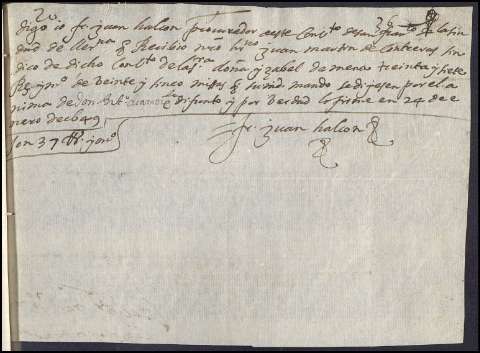 digo io fr juan halcon procurador deste Conto de san franco de la siu
dad de Ller.na q Recibio nro hno juan martin de Contreras sin
dico de dicho Conto de la sra doña ysabel de mena treinta y siete
Rs y mo de veinte y sinco misas q su md mando se dijesen por el a
nima de don difunto y por verdad lo firme en 24 de e
nero de
son 37 Rs y mo
fr juan halcon